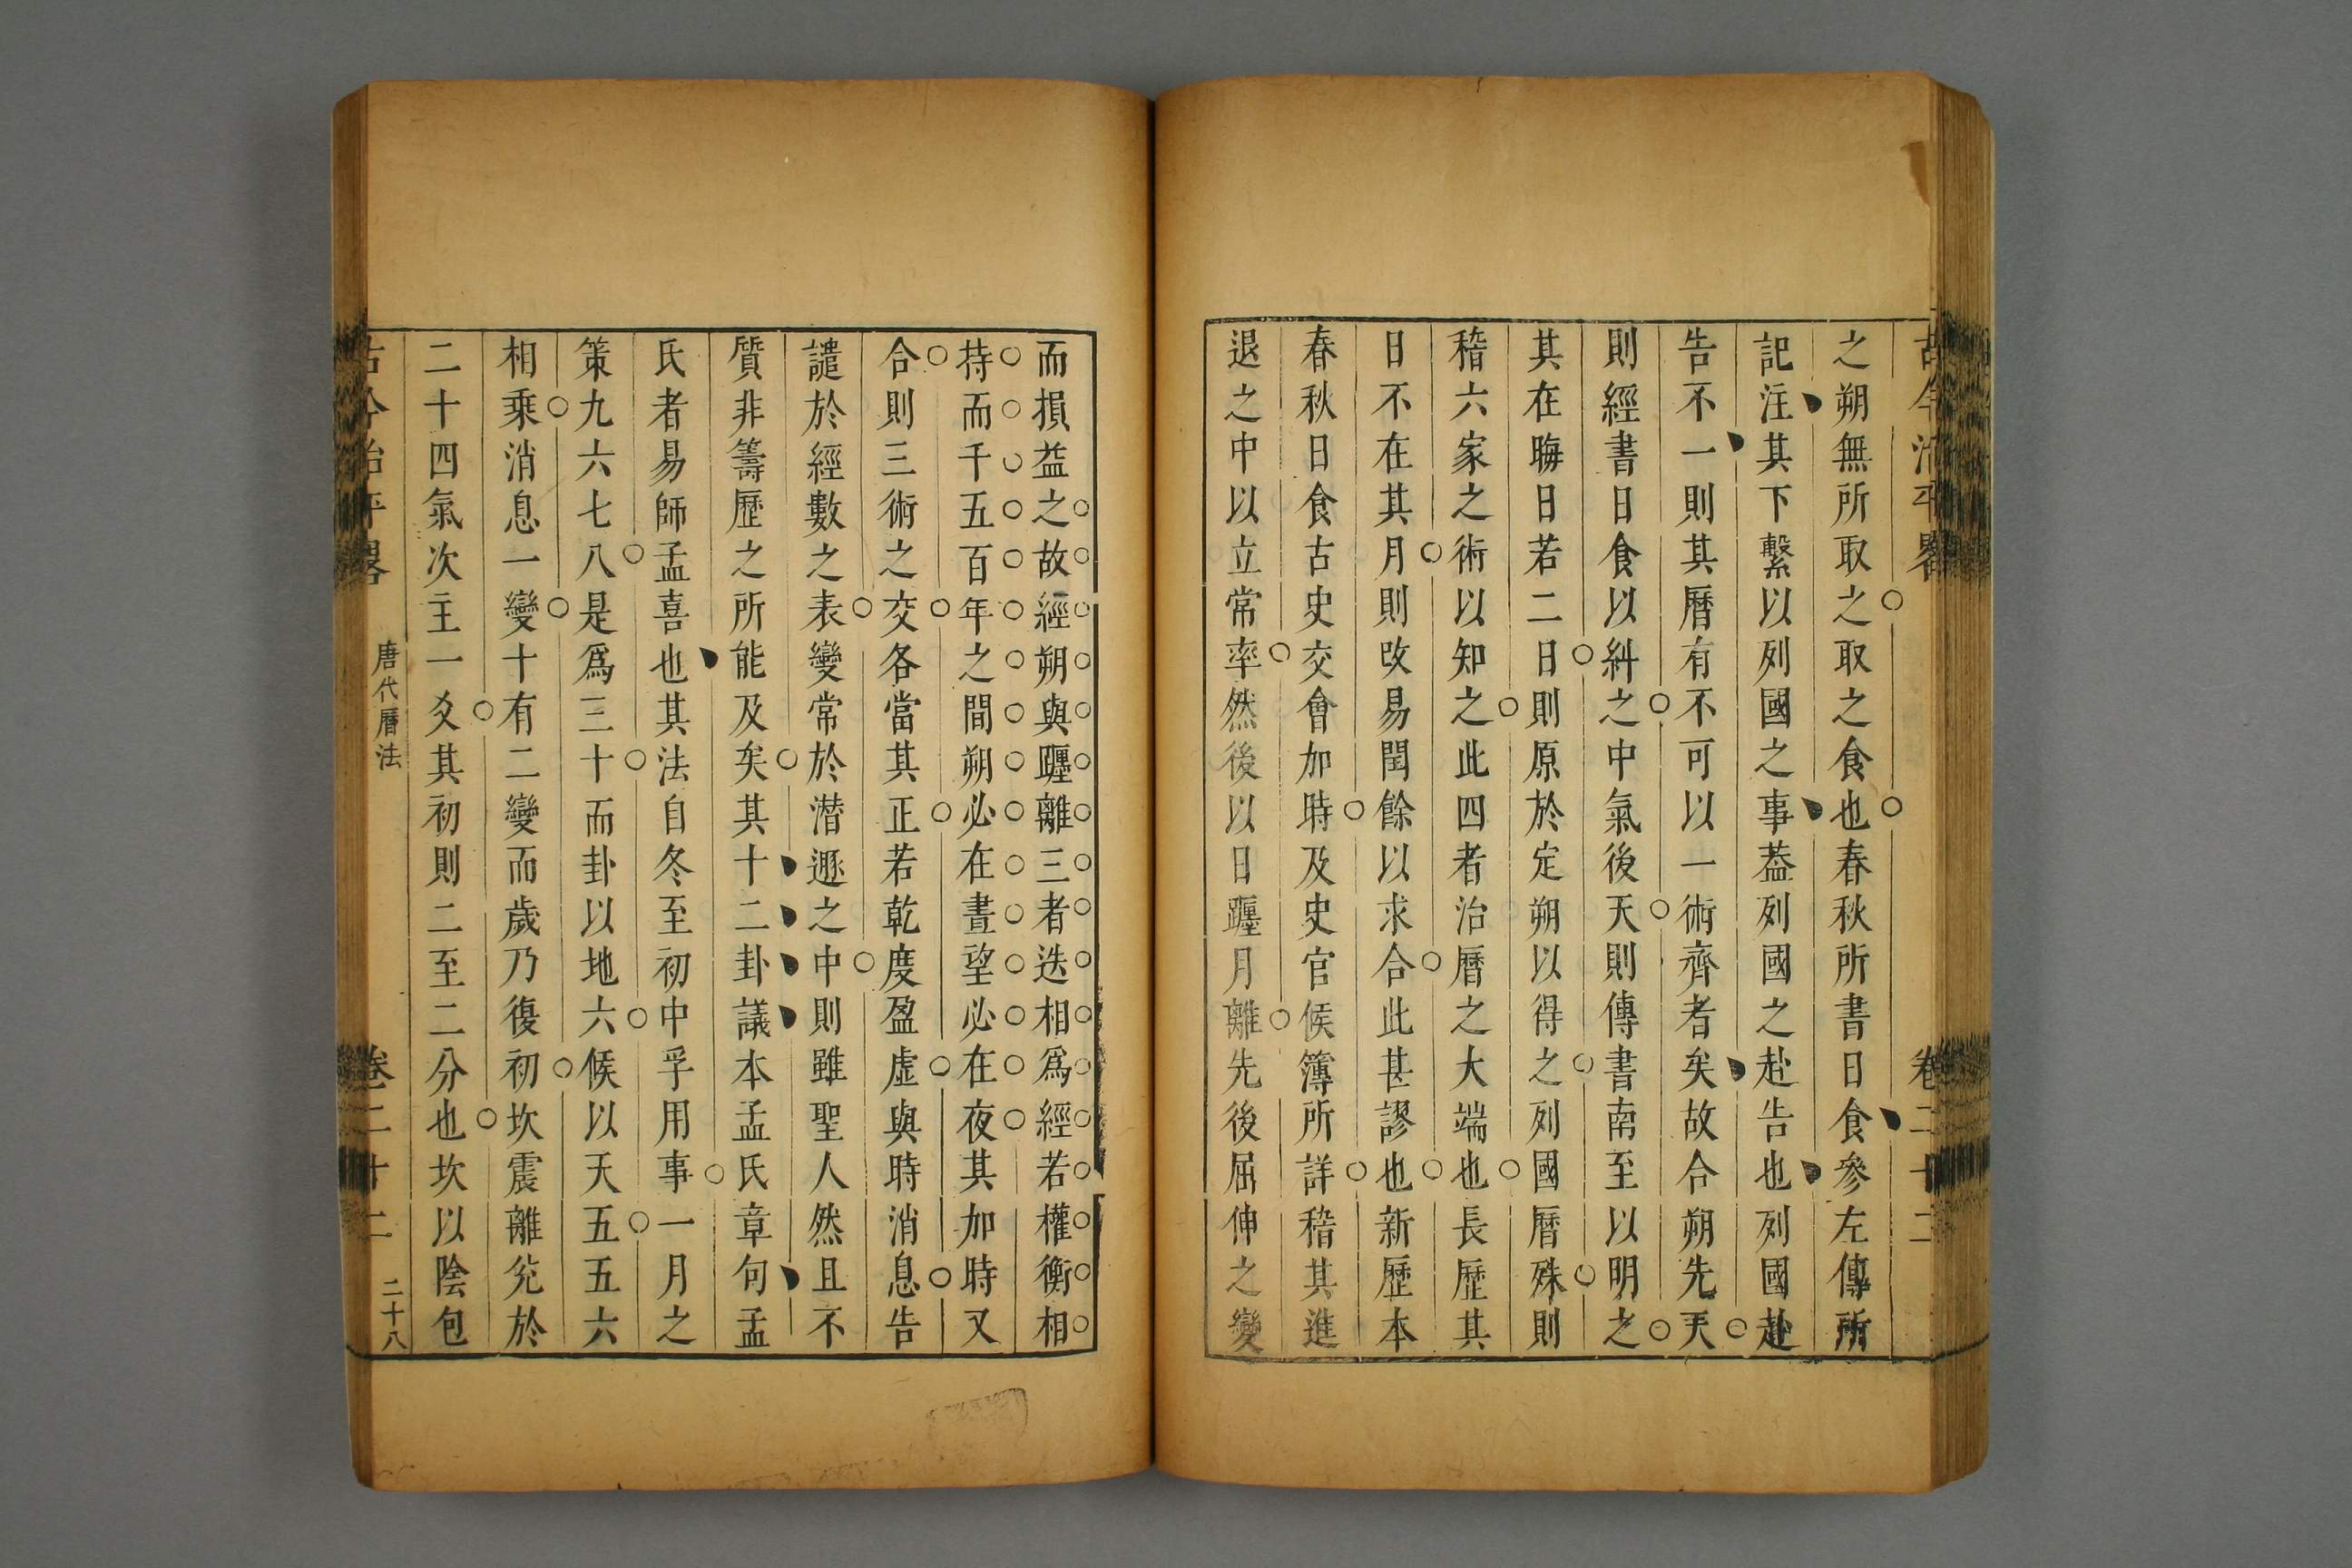 之朔無所取之取之食也春秋所書日食參左傳所
記注其下繫以列國之事葢列國之赴告也列國赴
告不一則其曆有不可以一術齊者矣故合朔先天
則經書日食以糾之中氣後天則傳書南至以明之
其在晦日若二日則原於定朔以得之列國曆殊則
稽六家之術以知之此四者治曆之大端也長歷其
日不在其月則改易閏餘以求合此甚謬也新歷本
春秋日食古史交會加時及史官候簿所詳稽其進
退之中以立常率然後以日躔月離先後屈伸之變
而損益之故經朔與躔離三者迭相爲經若權衡相
持而千五百年之間朔必在晝望必在夜其加時又
合則三術之交各當其正若乾度盈虛與時消息告
譴於經數之表變常於潛遯之中則雖聖人然且不
質非籌歷之所能及矣其十二卦議本孟氏章句孟
氏者易師孟喜也其法自冬至初中孚用事一月之
策九六七八是爲三十而卦以地六候以天五五六
相乘消息一變十有二變而歲乃復初坎震離兊於
二十四氣次主一爻其初則二至二分也坎以陰包
古今治平畧 唐代曆法 卷二十二 二十八